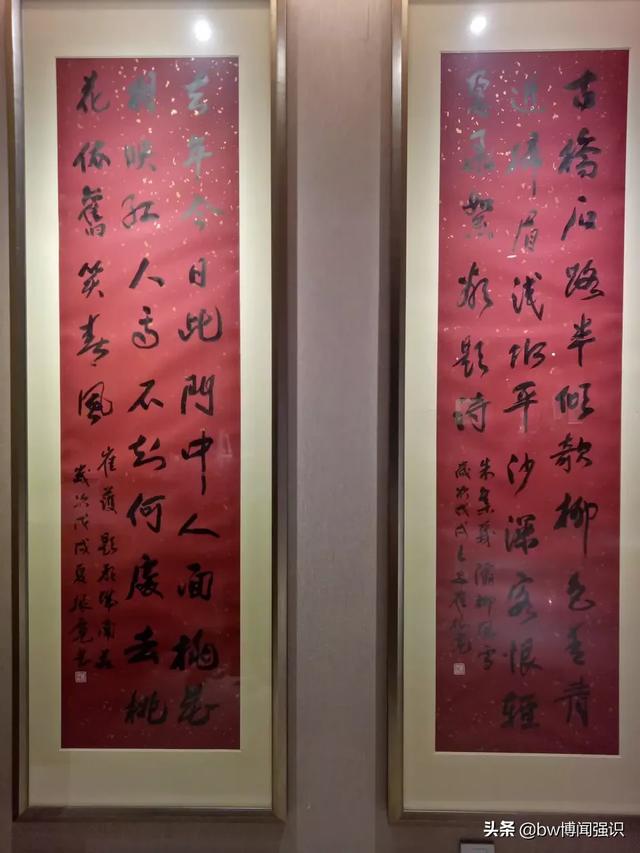 古橋石路半傾欹柳色青青
近掃眉浅水平沙深客恨輕
盈飛絮欲題詩
朱集義灞柳風雪
歲次戊戌之夏
去年今日此門中人面桃花
相映红人面不知何處去桃
花依舊笑春風
崔護題都城南莊
歲次戊戌夏振堯書
头条 @bw博闻强识